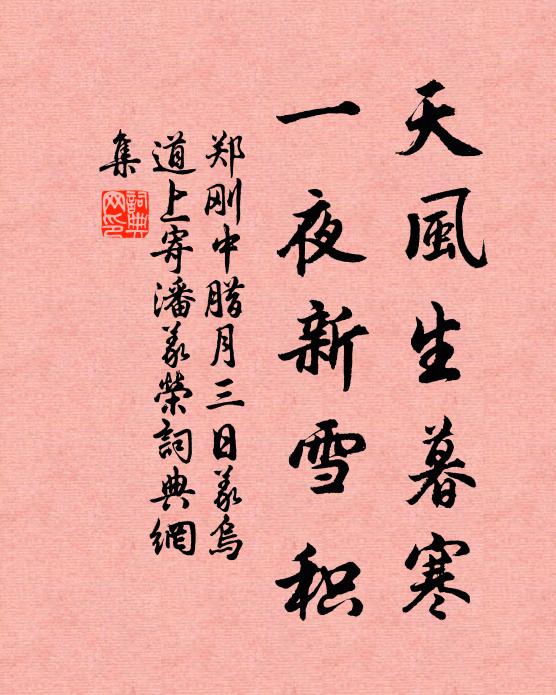 天風生暮寒
一夜新雪积
郑刚中腊月三日义烏
道上寄潘义榮詞典網
集
詞典网印